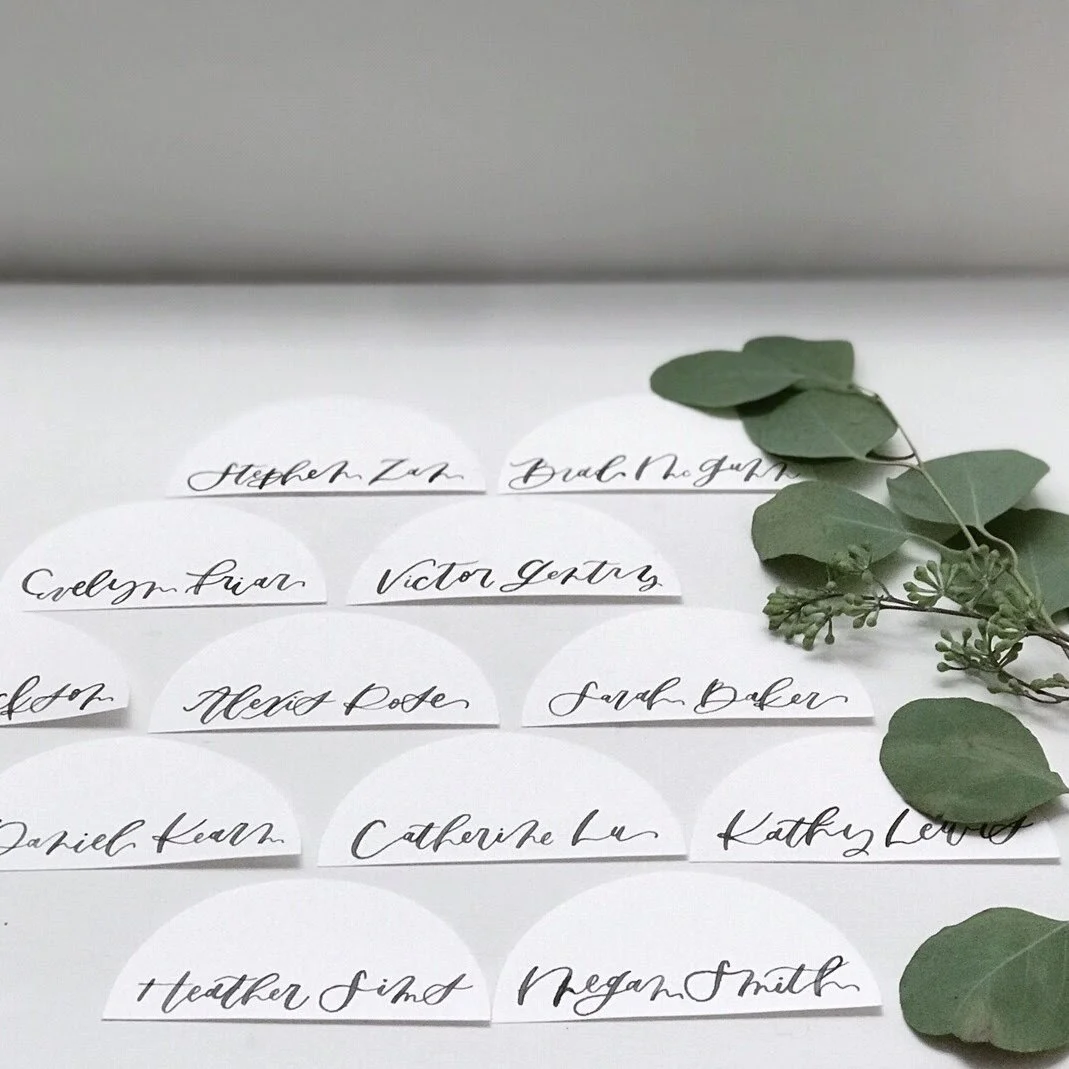 Stephen Zan
Brad McGunn
Evelyn Friar
Victor Gentry
Alexis Rose
Sarah Baker
Daniel Kearn
Catherine Lu
Kathy Lewis
Heather Sims
Megan Smith